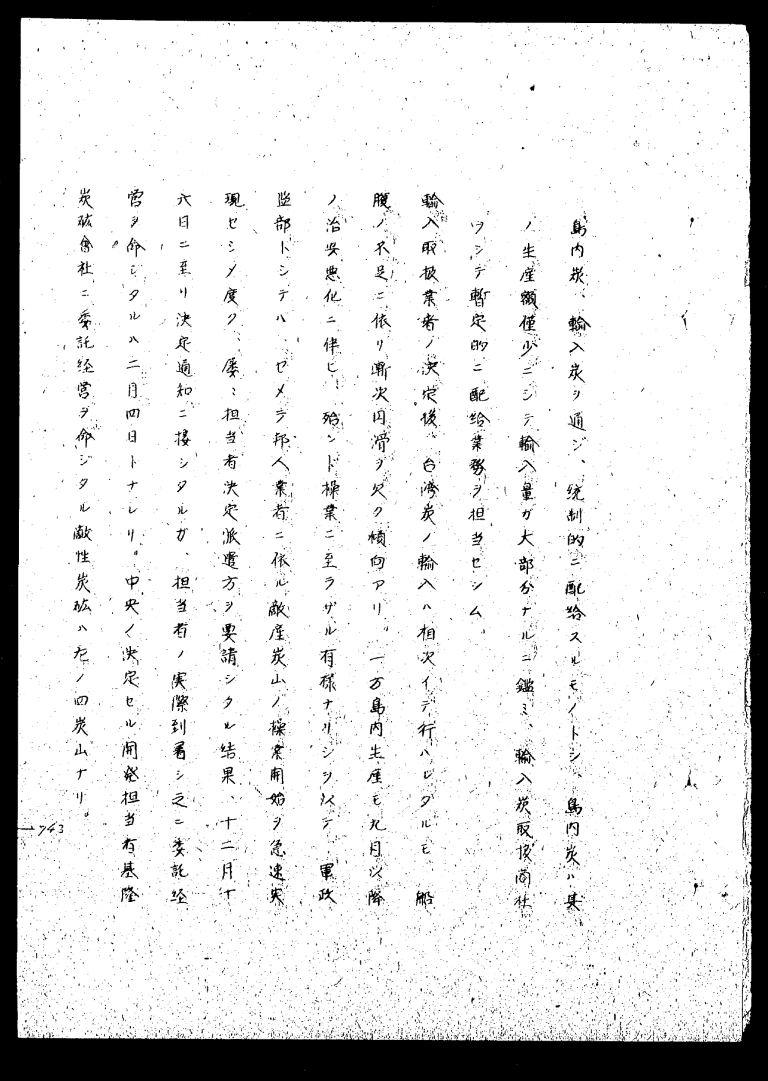 島内炭、輸入炭ヲ通ジ、統制的ニ配給スルモノトシ、島内炭ハ其
ノ生産額僅少ニシテ輸入量ガ大部分ナルニ鑑ミ、輸入炭取扱商社
ヲシテ暫定的ニ配給業務ヲ担当セシム。
輸入取扱業者ノ決定後、台湾炭ノ輸入ハ相次イデ行ハレタルモ、船
腹ノ不足ニ依リ漸次円滑ヲ欠ク傾向アリ。一方島内生産モ九月以降
ノ治安悪化ニ伴ヒ、殆ンド操業ニ至ラザル有様ナリシヲ以テ、軍政
監部トシテハ、セメテ邦人業者ニ依ル敵産炭山ノ操業開始ヲ急速実
現セシメ度ク、屡々担当者決定派遣方ヲ要請シタル結果、十二月十
六日ニ至リ決定通知ニ接シタルガ、担当者ノ実際到着シ之ニ委託経
営ヲ命ジタルハ二月四日トナレリ。中央ノ決定セル開発担当者基隆
炭砿会社ニ委託経営ヲ命ジタル敵性炭砿ハ左ノ四炭山ナリ。
743